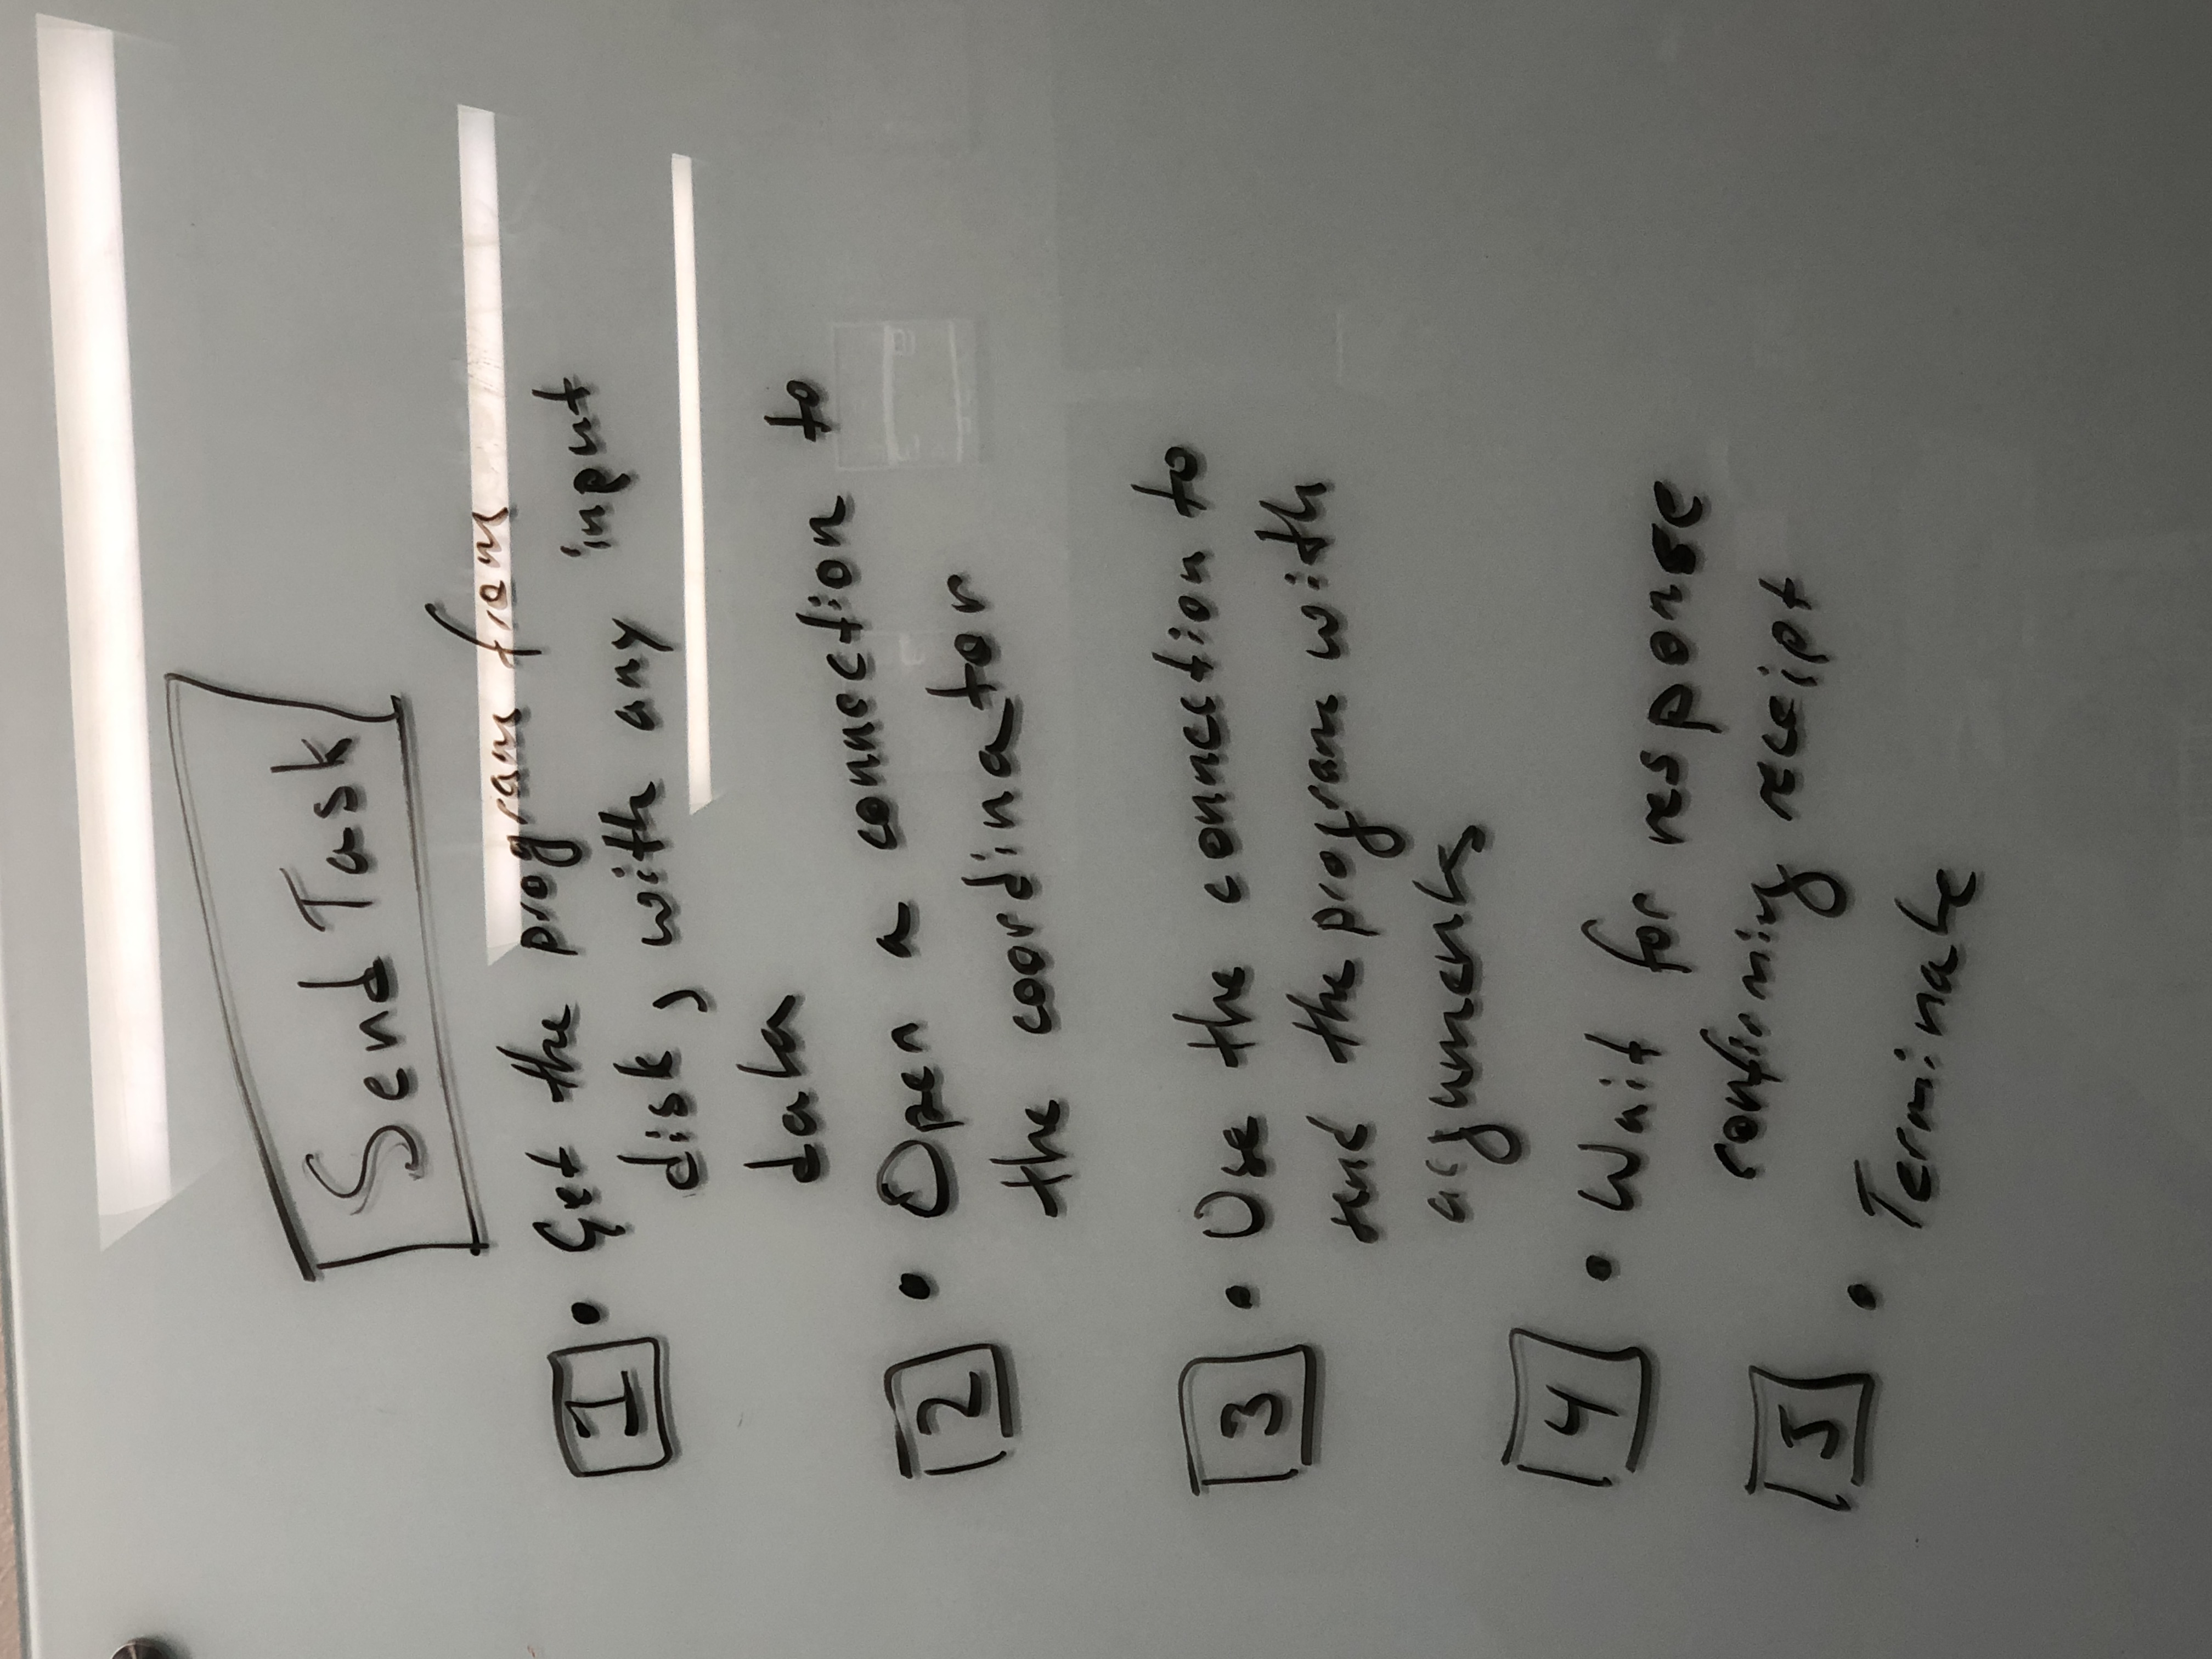 Send Task
1 • Get the program from
disk, with any input
data
2 • Open a connection to
the coordinator
3 • Use the connection to
send the program with
arguments
4 • Wait for response
confirming receipt
5 • Terminate